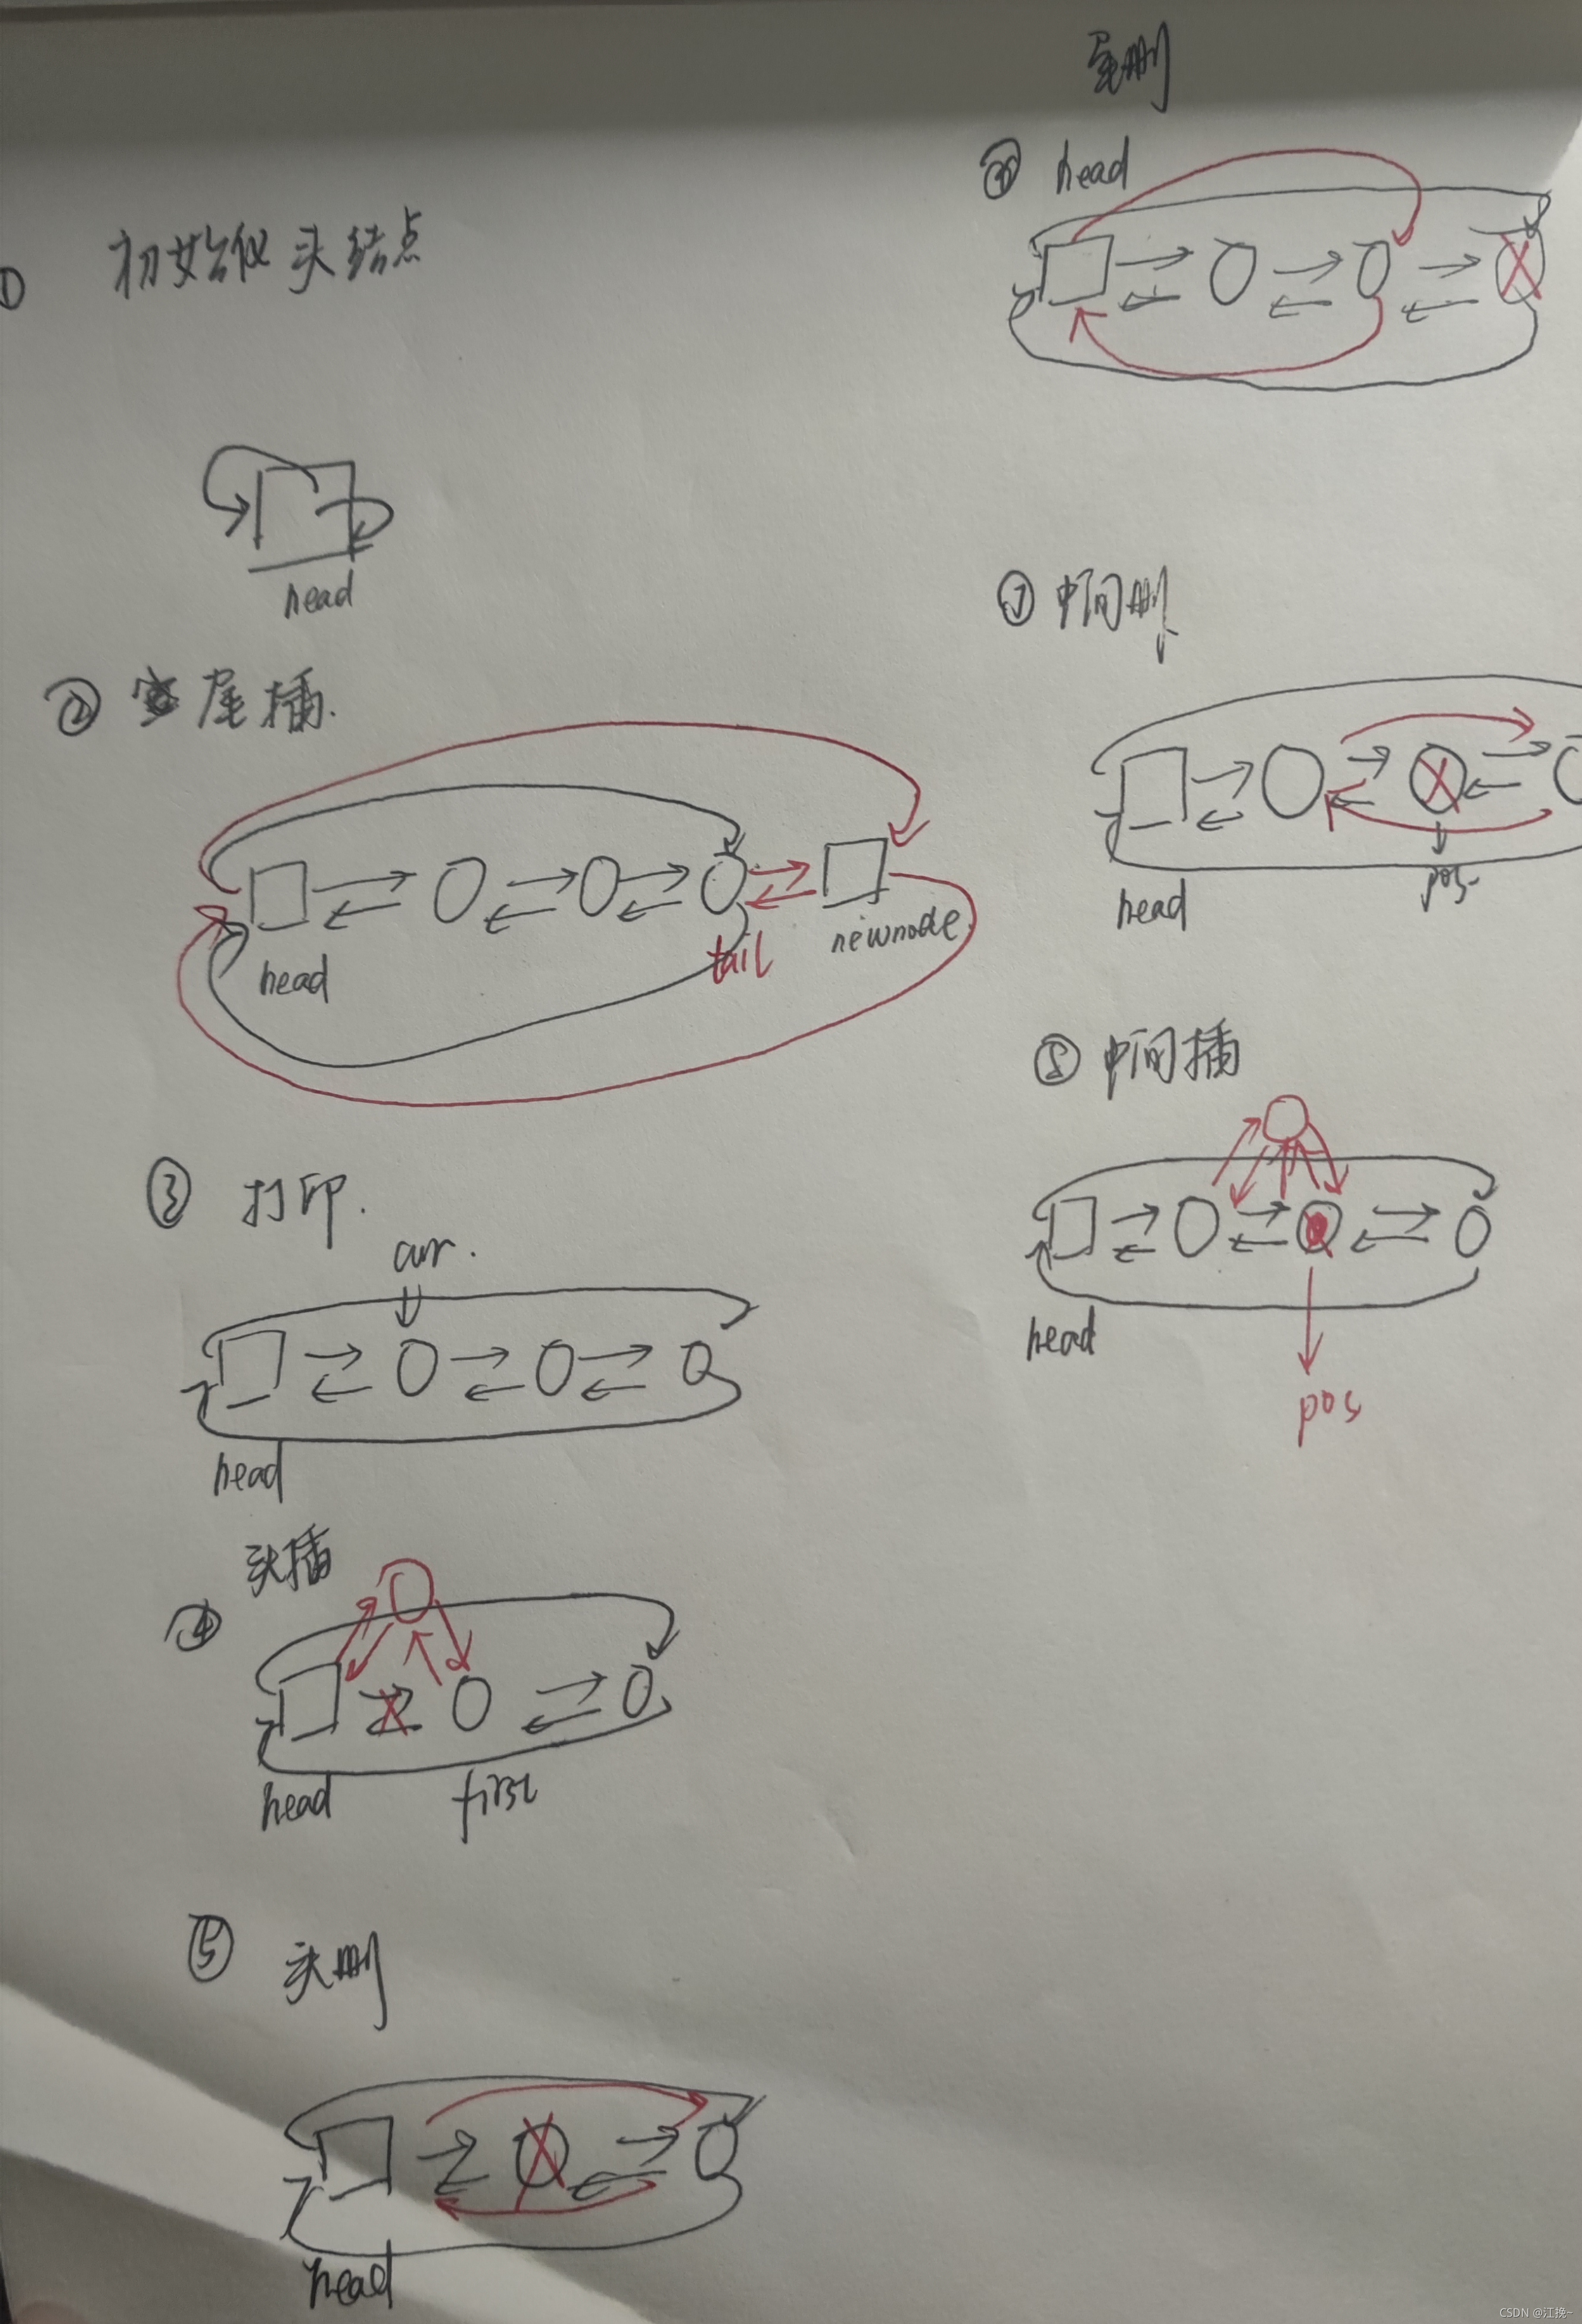 ① 初始化头结点
head
② 尾插.
head
tail
newnode
③ 打印.
cur.
head
头插
④
head
first
⑤ 头删
head
尾删
⑥ head
⑦ 中间删
head
pos
⑧ 中间插
head
pos
CSDN @江挽~